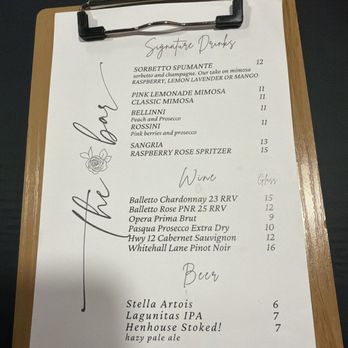 the bar
Signature Drinks
SORBETTO SPUMANTE 12
sorbetto and champagne. Our take on mimosa
RASPBERRY, LEMON LAVENDER OR MANGO
PINK LEMONADE MIMOSA 11
CLASSIC MIMOSA 11
BELLINNI 11
Peach and Prosecco
ROSSINI 11
Pink berries and prosecco
SANGRIA 13
RASPBERRY ROSE SPRITZER 15
Wine Glass
Balletto Chardonnay 23 RRV 15
Balletto Rose PNR 25 RRV 12
Opera Prima Brut 9
Pasqua Prosecco Extra Dry 10
Hwy 12 Cabernet Sauvignon 12
Whitehall Lane Pinot Noir 16
Beer
Stella Artois 6
Lagunitas IPA 7
Henhouse Stoked! 7
hazy pale ale